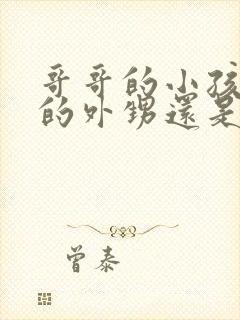 哥哥的小孩
的外甥還是
曾泰